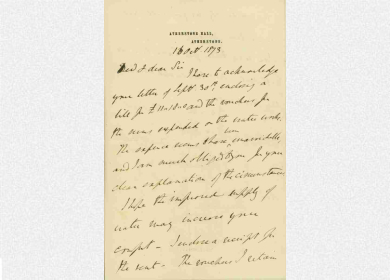 ATHERSTONE HALL,
ATHERSTONE.
1 Oct 1873
Revd & dear Sir I have to acknowledge
your letter of Sept. 30th, enclosing a
bill for £ and the vouchers for
the sums expended on the water works.
The expence seems to have been unavoidable
and I am much obliged to you for your
clear explanation of the circumstances
I hope the improved supply of
water may increase your
comfort – I enclose a receipt for
the rent – The vouchers I return